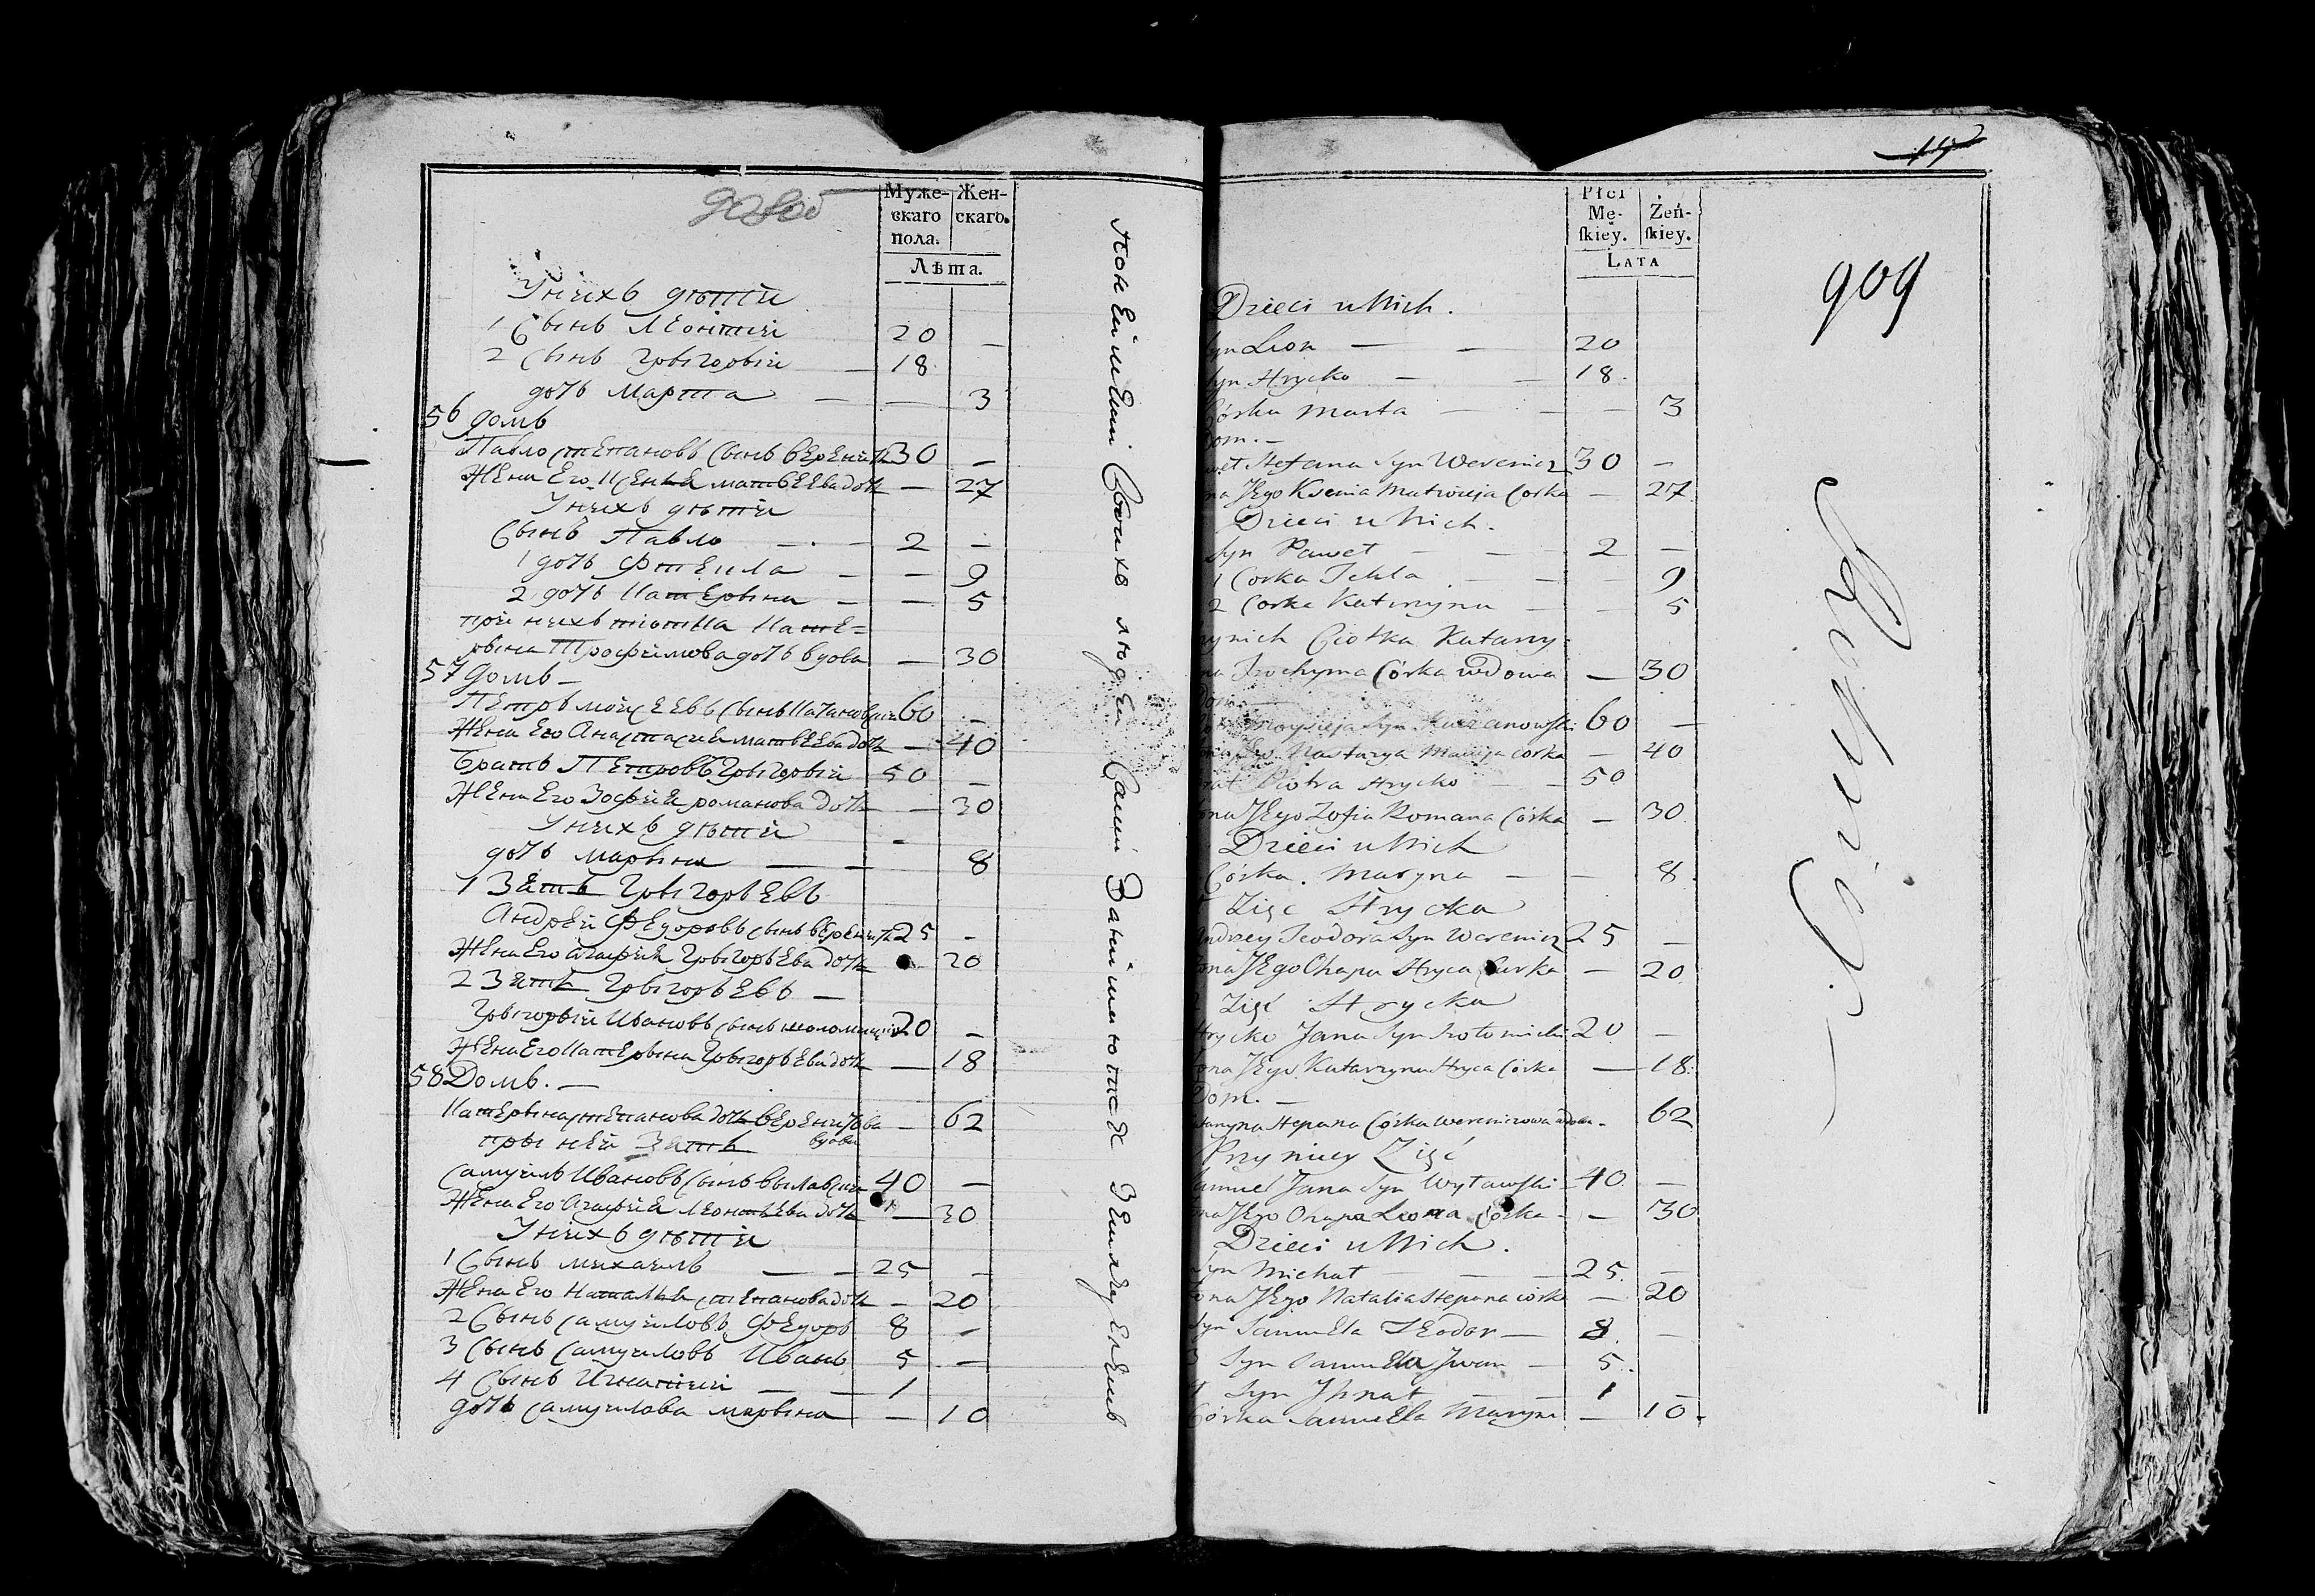 Муже-
скаго
пола.
Жен-
скаго.
Лѣта.
У нихъ дѣти
1 Сынъ Леонтий 20 —
2 Сынъ Грыгорый — 18
дочь Марта — — 3
56 домъ
Павло Степановъ сынъ Вереничъ 30 —
Жена Его Ксения Матвеева дочь — 27
У нихъ дѣти
Сынъ Павло — 2 —
1 дочь Фтекла — — 9
2 дочь Катерына — — 5
при нихъ тиотка Кате=
рына Трофимова дочь вдова — 30
57 домъ —
Петръ Моисеевъ сынъ 60 —
Жена Его Анастасия Матвеева дочь — 40
Братъ Петровъ Грыгорый 50 —
Жена Его Зофия Романова дочь — 30
У нихъ дѣти —
дочь Марына — — 8
1 Зять Грыгорьевъ
Андрей Федоровъ сынъ Вереничъ 25 —
Жена Его Агафия Грыгорьева дочь 20
2 Зять Грыгорьевъ —
Грыгорый Ивановъ сынъ 20 —
Жена Его Катерына Грыгорьева дочь — 18
58 Домъ. —
Катерына Степанова дочь Вереничова вдова — 62
пры ней Зять
Самуиль Ивановъ сынъ 40 —
Жена Его Агафия Леонтьева дочь — 30
У нихъ дѣти
1 Сынъ Михаилъ — — 25 —
Жена Его Наталия Степанова дочь — 20
2 Сынъ Самуиловъ Федоръ 8 —
3 Сынъ Самуиловъ Иванъ 5 —
4 Сынъ Игнатий — — 1
дочь Самуилова Марына — 10
Своихъ людей Сами
909
Płci
Mę-
ſkiey.
Żeń-
ſkiey.
Lata
Dzieci u Nich.
Syn Leon — — 20
Syn Hrycko — — 18.
Córka Marta — — — 3
Dom. —
Stefana Syn Werenicz 30 —
na JEgo Ksenia Matwieja Corka — 27.
Dzieci u Nich.
Syn Paweł — — 2 —
1 Corka Tekla — — 9
2 Corka Katerzyna — — 5
ynich Ciotka Katarzy=
na Trochyma Córka wdowa — 30
Dom. —
Moysieja Syn 60 —
Nastazya Corka — 40
Brat Piotra Hrycko — — 50
ona JEgo Zofia Romana Córka — 30.
Dzieci u Nich
Córka. Maryna — — 8.
Zięć Hrycka
Andrzey Teodora Syn Werenicz 25 —
ona JEgo Ohapa Hryca Curka — 20.
2 Zięć Hrycka
Hrycko Jana Syn 20. —
ona JEgo Katarzyna Hryca Córka — 18.
Dom. —
Stepana Córka Wereniczowa wdowa — 62
Przy niey Zięć
Samuel Jana Syn 40. —
na JEgo Ohapa Leona Córka — — 30
Dzieci u Nich.
Syn Michał — — 25. —
ona JEgo Natalia Stepana Córka — 20
Syn Samuela Teodor — 8. —
3 Syn Samuela Jwan — 5.
4 Syn Jhnat — — 1 —
Córka Samuella Maryna — 10.